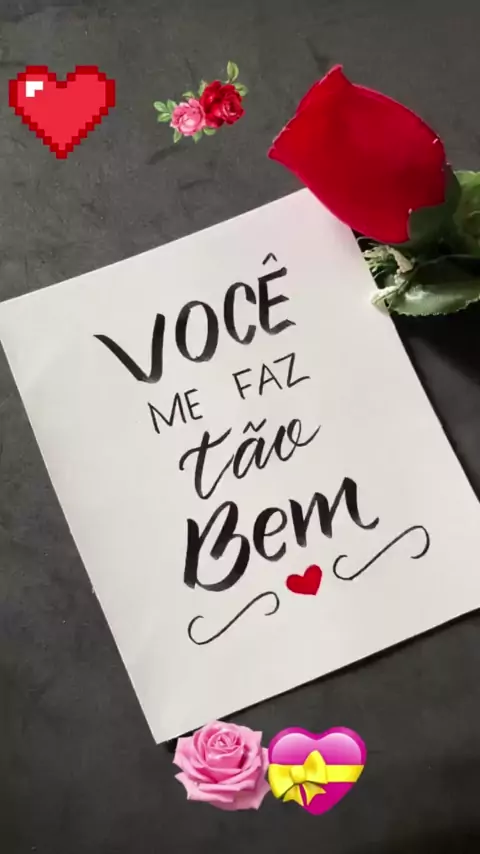 VOCÊ
ME FAZ
tão
Bem